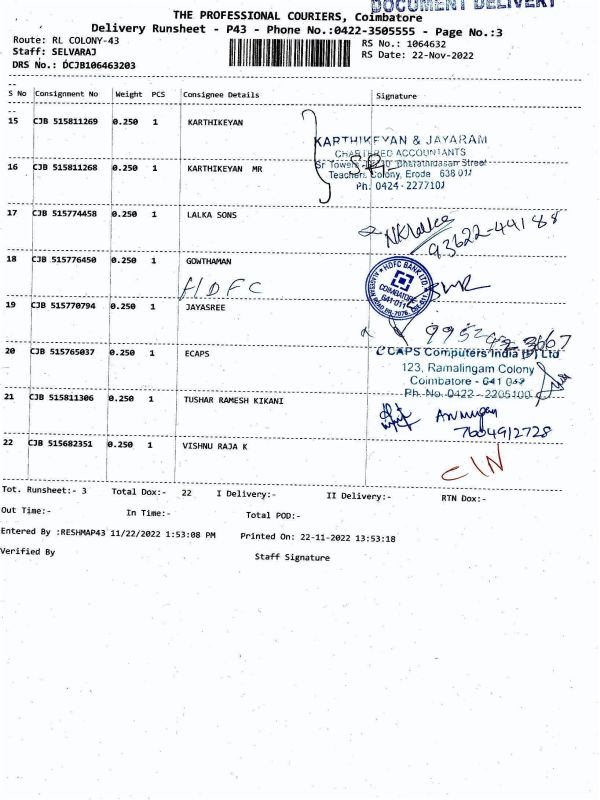 DOCUMENT DELIVERY
THE PROFESSIONAL COURIERS, Coimbatore
Delivery Runsheet - P43 - Phone No.:0422-3505555 - Page No.:3
Route: RL COLONY-43
RS No.: 1064632
Staff: SELVARAJ
RS Date: 22-Nov-2022
DRS No.: DCJB106463203
S No Consignment No Weight PCS Consignee Details Signature
15 CJB 515811269 0.250 1 KARTHIKEYAN
KARTHIKEYAN & JAYARAM
CHARTERED ACCOUNTANTS
16 CJB 515811268 0.250 1 KARTHIKEYAN MR
Sr Towers Bharathidasan Street
Teachers Colony, Erode 638 011
Ph: 0424-2277101
17 CJB 515774458 0.250 1 LALKA SONS
93622-44188
18 CJB 515776450 0.250 1 GOWTHAMAN
HDFC
HDFC BANK LTD.
COIMBATORE
641 011
19 CJB 515770794 0.250 1 JAYASREE
20 CJB 515765037 0.250 1 ECAPS
CCAPS Computers India (P) Ltd
123, Ramalingam Colony
Coimbatore - 641 043
Ph.No.0422 - 2205100
21 CJB 515811306 0.250 1 TUSHAR RAMESH KIKANI
Arumugam
7604912728
22 CJB 515682351 0.250 1 VISHNU RAJA K
C/N
Tot. Runsheet:- 3 Total Dox:- 22 I Delivery:- II Delivery:- RTN Dox:-
Out Time:- In Time:- Total POD:-
Entered By :RESHMAP43 11/22/2022 1:53:08 PM Printed On: 22-11-2022 13:53:18
Verified By Staff Signature